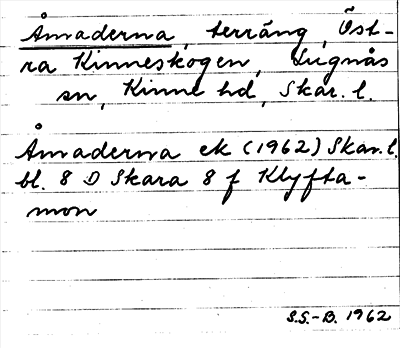 Åmaderna, terräng, Öst-
ra Kinneskogen, Lugnås
sn, Kinne hd, Skar. l.
Åmaderna ek (1962) Skar. l.
bl. 8 D Skara 8 f Klyfta-
mon
S.S.-B. 1962